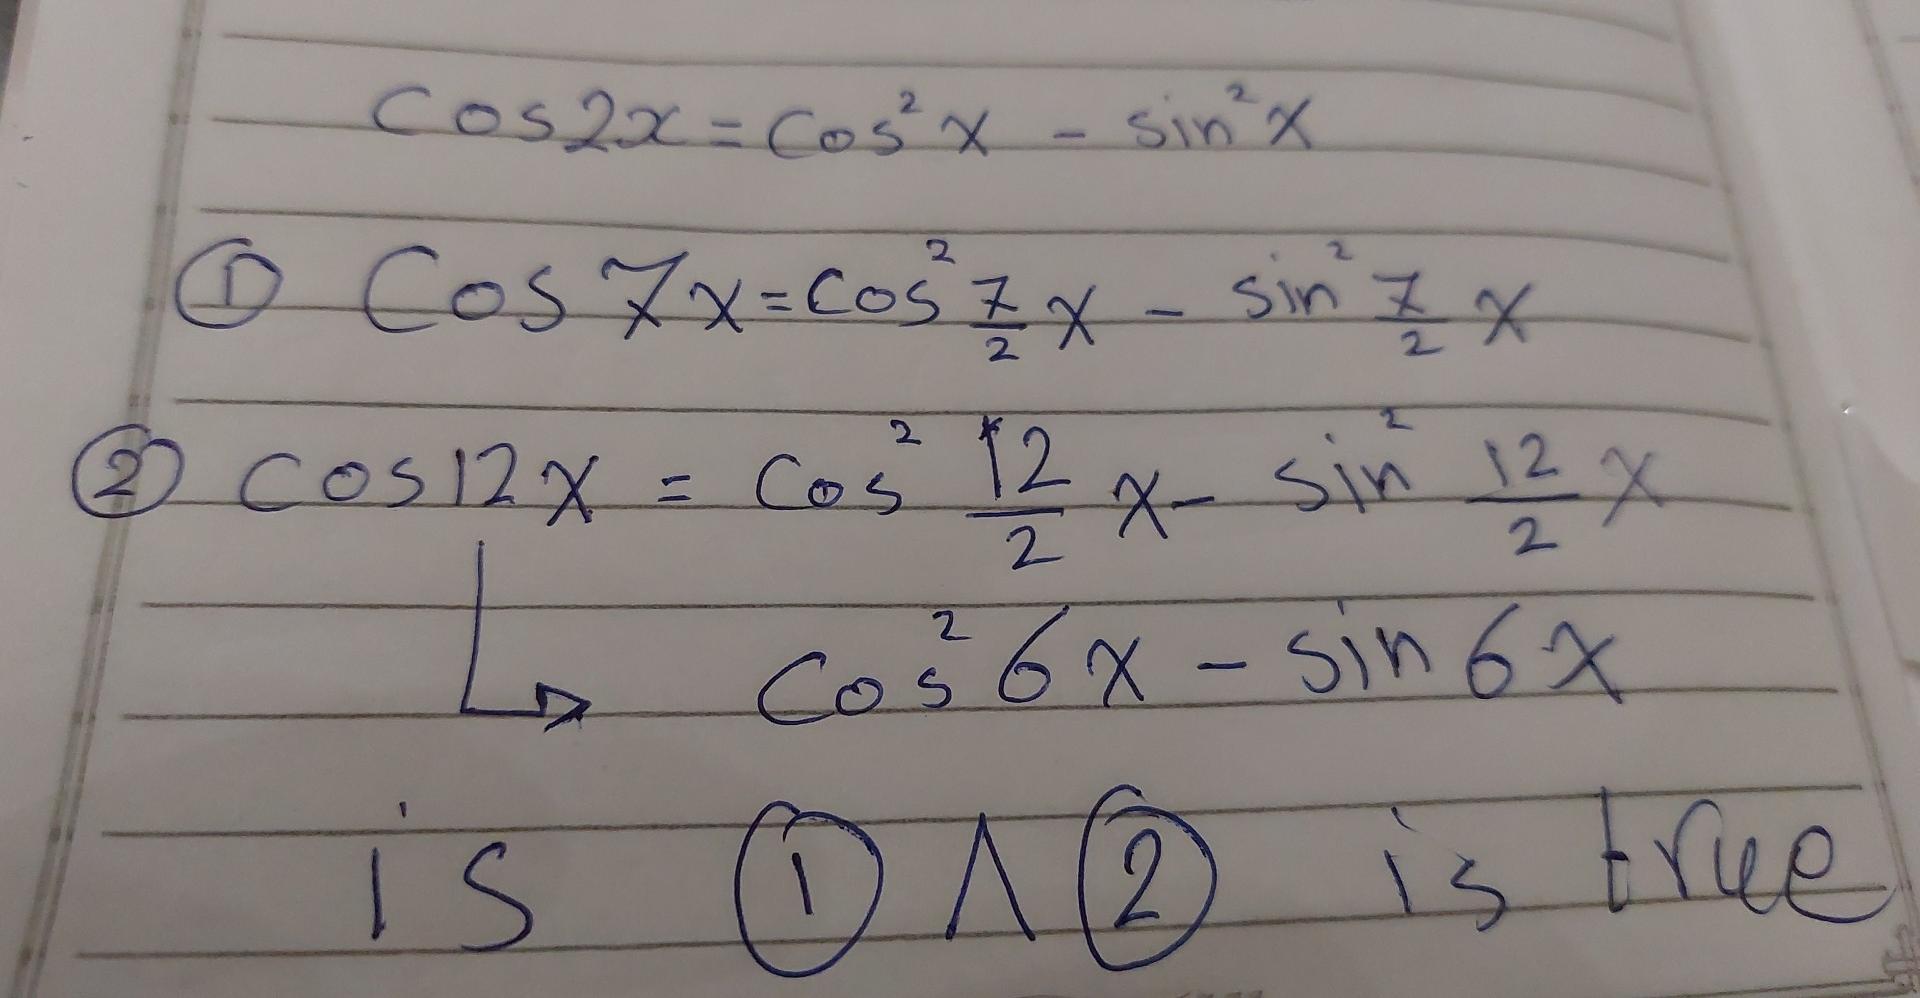 cos2x = cos²x - sin²x
① Cos 7x = cos² 7/2 x - sin² 7/2 x
② cos12x = cos² 12/2 x - sin² 12/2 x
↳ cos² 6x - sin 6x
is ① ∧ ② is true